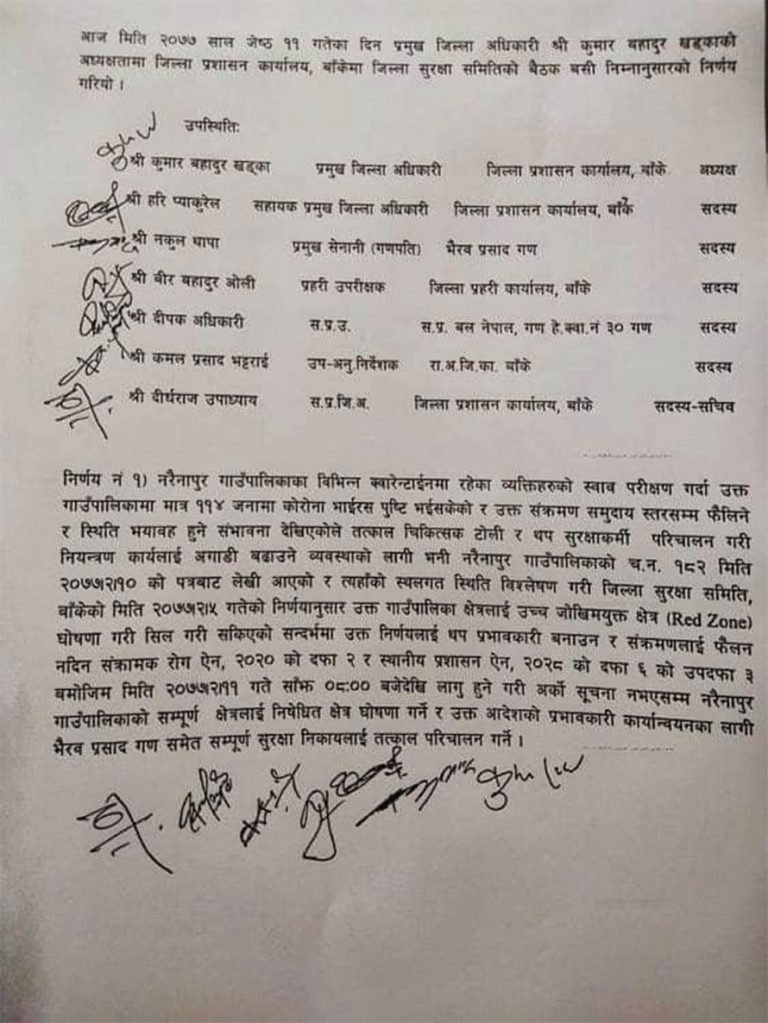 आज मिति २०७७ साल जेष्ठ ११ गतेका दिन प्रमुख जिल्ला अधिकारी श्री कुमार बहादुर खड्काको
अध्यक्षतामा जिल्ला प्रशासन कार्यालय, बाँकेमा जिल्ला सुरक्षा समितिको बैठक बसी निम्नानुसारको निर्णय
गरियो ।
उपस्थितिः
श्री कुमार बहादुर खड्का प्रमुख जिल्ला अधिकारी जिल्ला प्रशासन कार्यालय, बाँके अध्यक्ष
श्री हरि प्याकुरेल सहायक प्रमुख जिल्ला अधिकारी जिल्ला प्रशासन कार्यालय, बाँके सदस्य
श्री नकुल थापा प्रमुख सेनानी (गणपति) भैरव प्रसाद गण सदस्य
श्री बीर बहादुर ओली प्रहरी उपरीक्षक जिल्ला प्रहरी कार्यालय, बाँके सदस्य
श्री दीपक अधिकारी स.प्र.उ. स.प्र. बल नेपाल, गण हे.क्वा.नं ३० गण सदस्य
श्री कमल प्रसाद भट्टराई उप-अनु.निर्देशक रा.अ.जि.का. बाँके सदस्य
श्री दीर्घराज उपाध्याय स.प्र.जि.अ. जिल्ला प्रशासन कार्यालय, बाँके सदस्य-सचिव
निर्णय नं १) नरैनापुर गाउँपालिकाका विभिन्न क्वारेन्टाईनमा रहेका व्यक्तिहरुको स्वाव परीक्षण गर्दा उक्त
गाउँपालिकामा मात्र ११४ जनामा कोरोना भाईरस पुष्टि भईसकेको र उक्त संक्रमण समुदाय स्तरसम्म फैलिने
र स्थिति भयावह हुने संभावना देखिएकोले तत्काल चिकित्सक टोली र थप सुरक्षाकर्मी परिचालन गरी
नियन्त्रण कार्यलाई अगाडी बढाउने व्यवस्थाको लागी भनी नरैनापुर गाउँपालिकाको च.न. १८२ मिति
२०७७।२।१० को पत्रबाट लेखी आएको र त्यहाँको स्थलगत स्थिति विश्लेषण गरी जिल्ला सुरक्षा समिति,
बाँकेको मिति २०७७।२।५ गतेको निर्णयानुसार उक्त गाउँपालिका क्षेत्रलाई उच्च जोखिमयुक्त क्षेत्र (Red Zone)
घोषणा गरी सिल गरी सकिएको सन्दर्भमा उक्त निर्णयलाई थप प्रभावकारी बनाउन र संक्रमणलाई फैलन
नदिन संक्रामक रोग ऐन, २०२० को दफा २ र स्थानीय प्रशासन ऐन, २०२८ को दफा ६ को उपदफा ३
बमोजिम मिति २०७७।२।११ गते साँझ ०८:०० बजेदेखि लागु हुने गरी अर्को सूचना नभएसम्म नरैनापुर
गाउँपालिकाको सम्पूर्ण क्षेत्रलाई निषेधित क्षेत्र घोषणा गर्ने र उक्त आदेशको प्रभावकारी कार्यान्वयनका लागी
भैरव प्रसाद गण समेत सम्पूर्ण सुरक्षा निकायलाई तत्काल परिचालन गर्ने ।